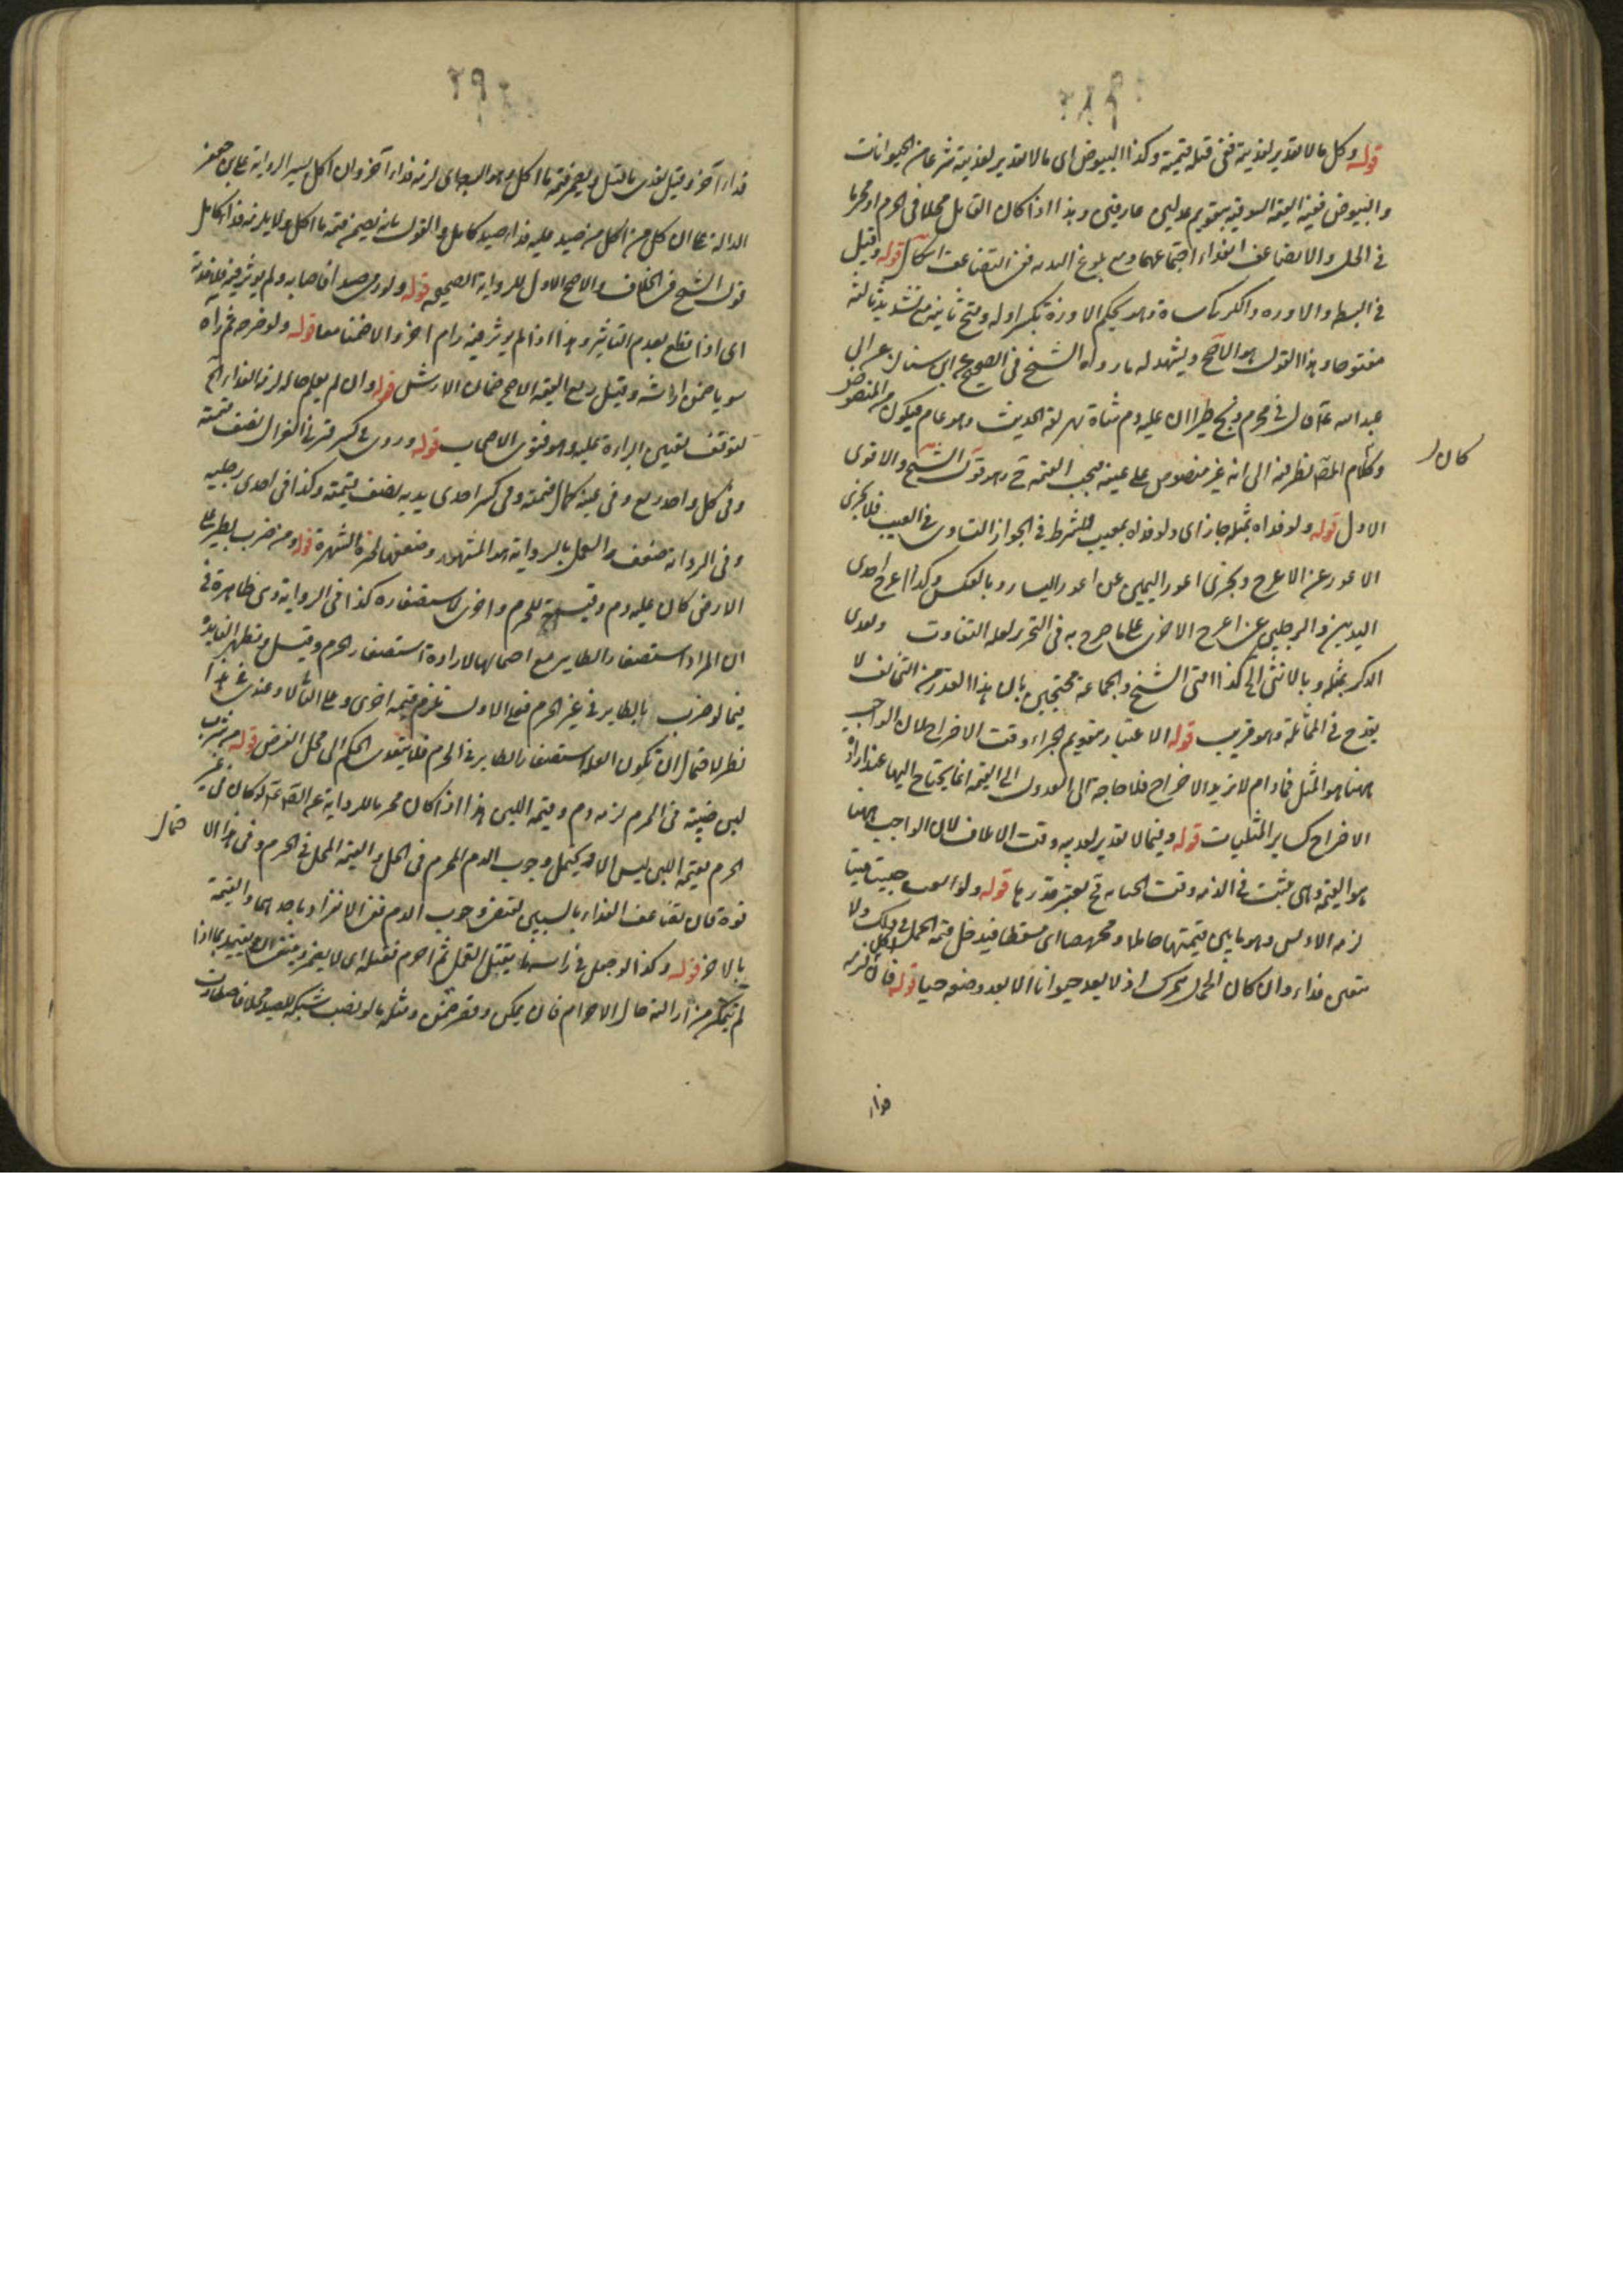 قوله وكل ما لا تقدير لفديته ففي قتله قيمته وكذا البيوض اى ما لا تقدير لفديته شرعا من الحيوانات
والبيوض ففيه القيمة السوقية بتقويم عدلين عارفين وهذا اذا كان القاتل محلا فى الحرم او محرما
فى الحل والا تضاعف الفداء باجتماعهما ومع بلوغ البدنه ففى التضاعف اشكال قوله وقيل
فى البط والاوزه والكركى شاة وهو بحكم الاوزة بكسر اوله وفتح ثانيه وتشديد ثالثه
مفتوحا وهذا القول هو الاصح ويشهد له ما رواه الشيخ فى الصحيح عن ابن سنان عن ابى
عبد الله ع قال فى محرم ذبح طيرا ان عليه دم شاة يهريقه الحديث وهو عام فيكون من المنصوص
وكلام المص نظر منه الى انه غير منصوص على عينه فيجب القيمة ح وهو قول الشيخ والاقوى
الاول قوله ولو فداه بمثله جاز اى ولو فداه بمعيب فلشرط فى الجواز التساوى فى العيب فلا يجزى
الاعور عن الاعرج ويجزى اعور اليمين عن اعور اليسار وبالعكس وكذا اعرج احدى
اليدين والرجلين عن اعرج الاخرى على ما صرح به فى التحرير لعدم التفاوت ويفدى
الذكر بمثله وبالانثى كذا افتى الشيخ والجماعة محتجين بان هذا القدر من التخالف لا
يقدح فى المماثلة وهو قريب قوله الاعتبار بتقويم الجزاء وقت الاخراج لان الواجب
ههنا هو المثل فما دام لا يريد الاخراج فلا حاجة الى العدول الى القيمة انما يحتاج اليها عند ارادة
الاخراج كساير المثليات قوله وفيما لا تقدير لفديته وقت الاتلاف لان الواجب ههنا
هو القيمة وهى تثبت فى الذمه وقت الجنايه ح يعتبر قدرها قوله ولو القت جنينا ميتا
لزمه الارش وهو ما بين قيمتها حاملا ومجهضا اى مسقطا فيدخل قيمة الحمل فى ذلك ولا
يتعين فداء وان كان الحمل تحرك اذ لا يعد حيوانا الا بعد وضعه حيا قوله فان اكل لزمه
كان
فداء
فداء آخر وقيل يفدى ما قتل ويضمن قيمة ما اكل وهو الوجه اى لزمه فداء آخر وان اكل يسيرا لرواية على بن جعفر
الدالة على ان كل من اكل من صيد عليه فداء صيد كامل والقول بانه يضمن قيمة ما اكل ولا يلزمه فداء كامل
قول الشيخ فى الخلاف والاصح الاول للرواية الصحيحه قوله ولو رمى صيدا فاصابه ولم يؤثر فيه فلا فدية
اى اذا قطع بعدم التاثير وهذا اذا لم يؤثر فيه رام آخر والا ضمنا معا قوله ولو جرحه ثم رآه
سويا ضمن ارشه وقيل ربع القيمة الاصح ضمان الارش قوله وان لم يعلم حاله لزمه الفداء الخ
لتوقف يقين البراءة عليه وهو فتوى الاصحاب قوله وروى فى كسر قرنى الغزال نصف قيمته
وفى كل واحد ربع وفى عينيه كمال قيمته وفى كسر احدى يديه نصف قيمته وكذا فى احدى رجليه
وفى الرواية ضعف والعمل بالرواية هو المشهور وضعفها لجبره الشهرة قوله ومن ضرب بطير على
الارض كان عليه دم وقيمة للحرم واخرى لاستصغاره كذا فى الرواية وهى ظاهرة فى
ان المراد استصغار الطاير مع احتمالها لارادة استصغار الحرم وقيل وتظهر الفايدة
فيما لو ضرب بالطاير فى غير الحرم فعلى الاول تلزم قيمة اخرى وعلى الثانى لا وعندى فى هذا
نظر لاحتمال ان تكون العلة استصغار الطاير فى الحرم فلا يتعدى الحكم الى محل الفرض قوله من شرب
لبن ظبية فى الحرم لزمه دم وقيمة اللبن هذا اذا كان محرما للرواية عن الص ع لو كان فى غير
الحرم فقيمة اللبن ليس الا وقد يحتمل وجوب الدم للمحرم فى الحل والقيمة للمحل فى الحرم وفى هذا الا
حتمال
قوة فان تضاعف الفداء بالسببين لتقضى وجوب الدم مع الانفراد باحدهما والقيمة
بالآخر قوله وكذا لو جعل فى راسه ما يقتل القمل ثم احرم فقتله اى لا يضمن وينبغى ان يقيد بما اذا
لم يتمكن من ازالته حال الاحرام فان تمكن وقصر ضمن ومثله ما لو نصب شبكة للصيد محلا فاصطادت